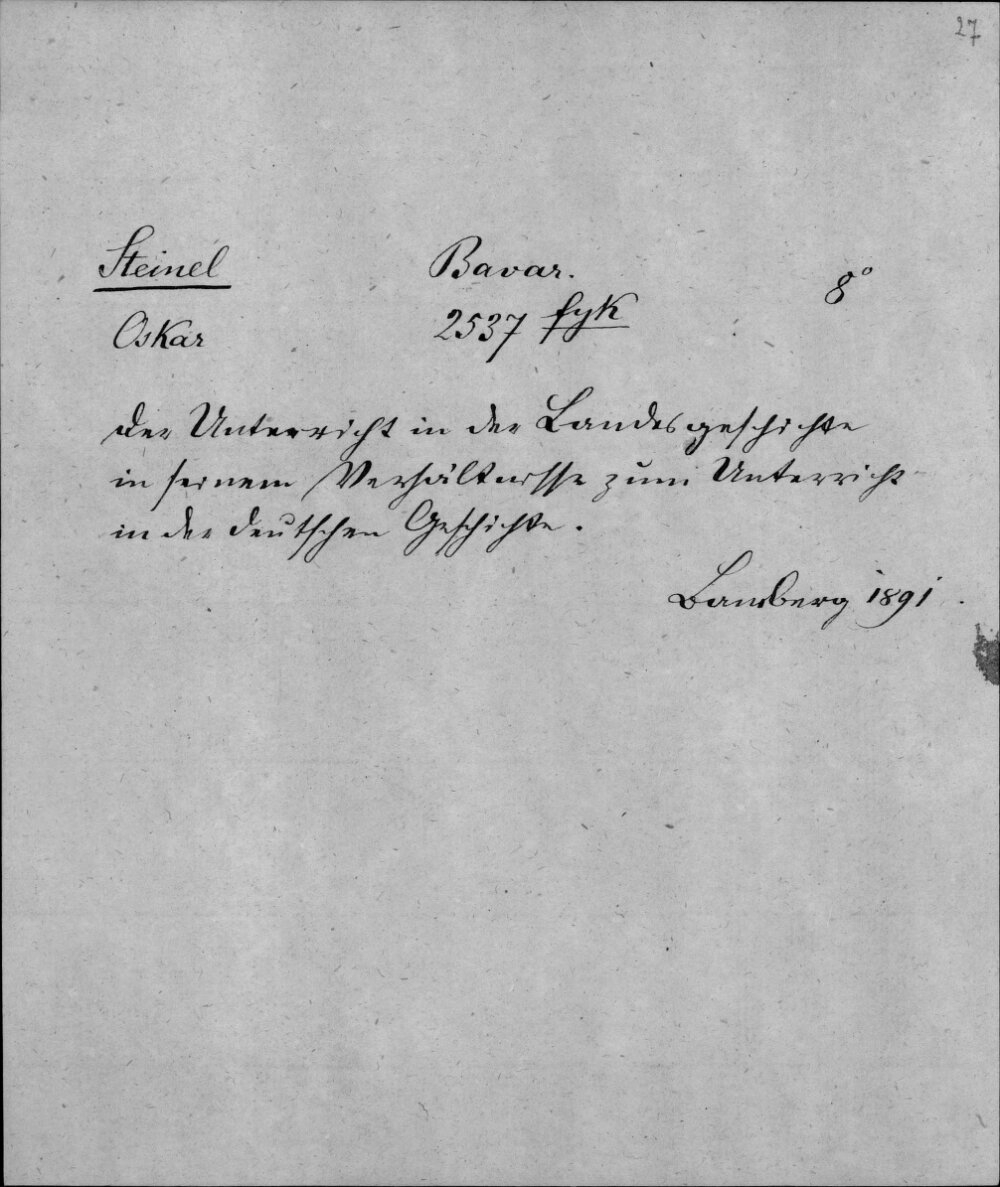 27
Steinel
Bavar.
8°
Oskar
2537 fyk
Der Unterricht in der Landesgeschichte
in seinem Verhältnisse zum Unterricht
in der deutschen Geschichte.
Bamberg 1891.